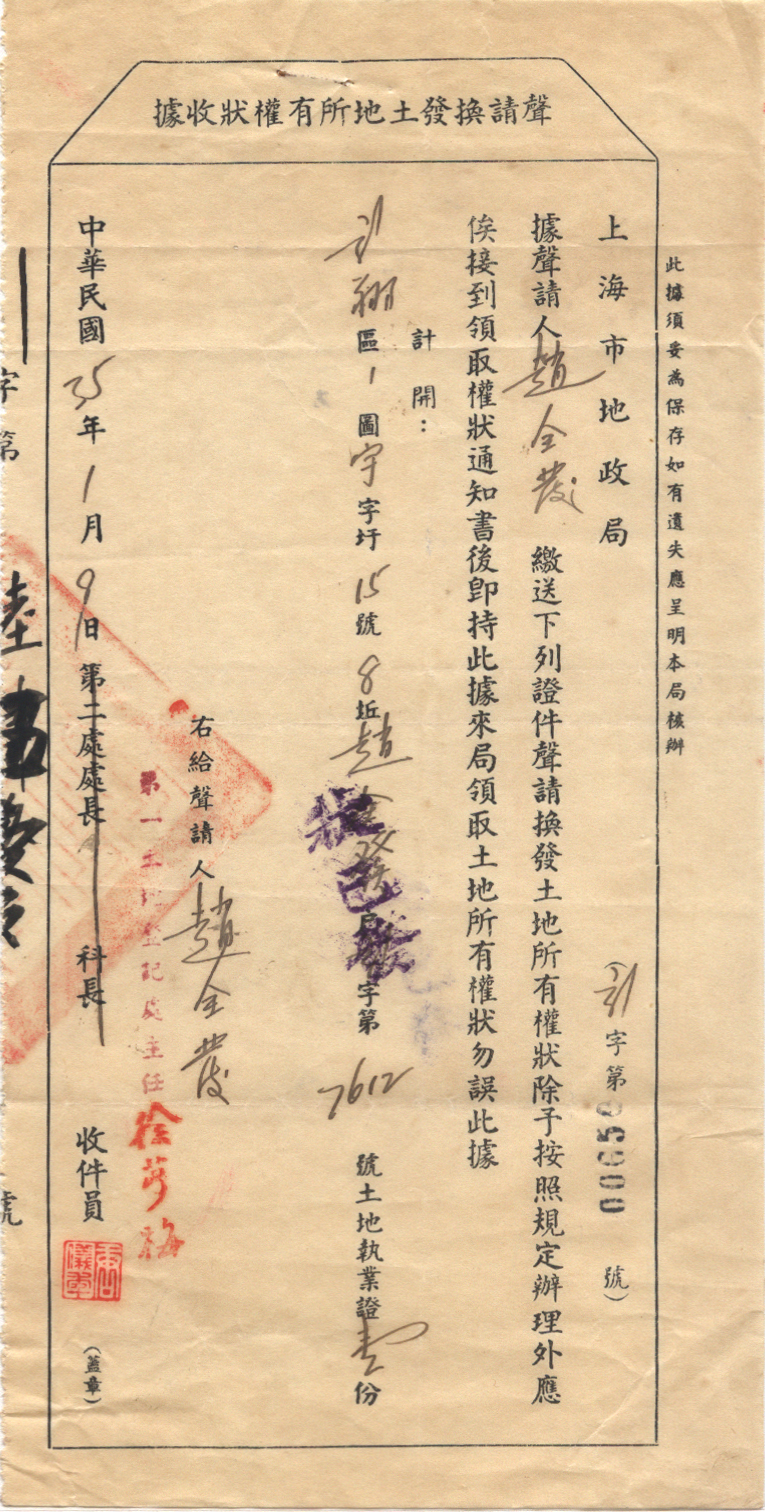 據收狀權有所地土發換請聲
此據須妥為保存如有遺失應呈明本局核辦
上海市地政局
引字第00650號)
據聲請人趙全發 繳送下列證件聲請換發土地所有權狀除予按照規定辦理外應
俟接到領取權狀通知書後卽持此據來局領取土地所有權狀勿誤此據
計開:
引翔區1圖宇字圩15號8坵趙全發 字第7612號土地執業證壹份
狀已發
右給聲請人趙全發
第一土地登記處主任徐夢梅
中華民國35年1月9日第二處處長 科長 收件員 (蓋章)
字第 號